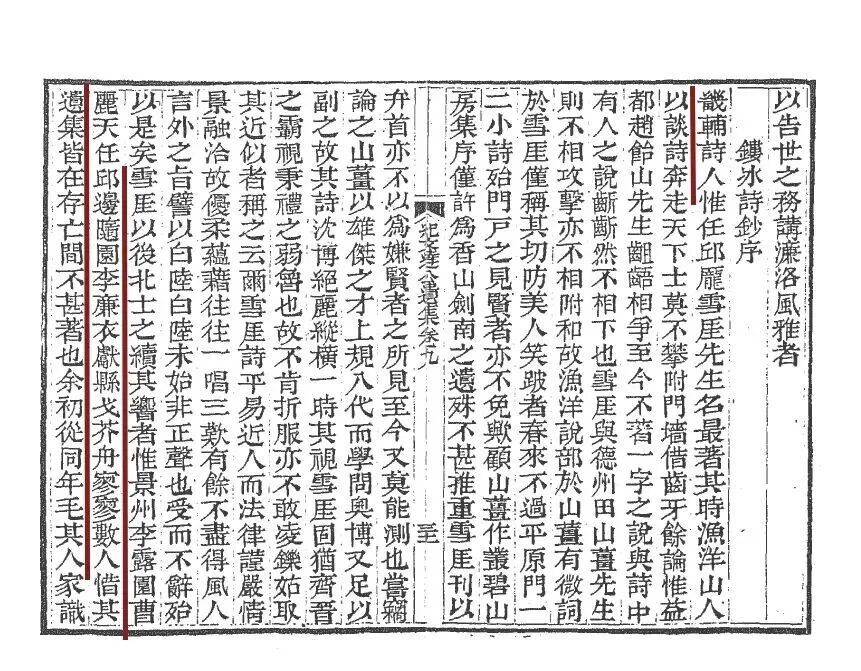 以告世之務講濂洛風雅者
鏤冰詩鈔序
畿輔詩人惟任邱龐雪厓先生名最著其時漁洋山人
以談詩奔走天下士莫不攀附門墻借齒牙餘論惟益
都趙飴山先生齟齬相爭至今不著一字之說與詩中
有人之說齗齗然不相下也雪厓與德州田山薑先生
則不相攻擊亦不相附和故漁洋說部於山薑有微詞
於雪厓僅稱其切防美人笑跛者春來不過平原門一
二小詩殆門戸之見賢者亦不免歟顧山薑作叢碧山
房集序僅許爲香山劍南之遺殊不甚推重雪厓刊以
紀文達公遺集卷九
至
弁首亦不以爲嫌賢者之所見至今又莫能測也嘗竊
論之山薑以雄傑之才上規八代而學問奥博又足以
副之故其詩沈博絕麗縱橫一時其視雪厓固猶齊晉
之霸視秉禮之弱魯也故不肯折服亦不敢凌鑠姑取
其近似者稱之云爾雪厓詩平易近人而法律謹嚴情
景融洽故優柔蘊藉往往一唱三歎有餘不盡得風人
言外之旨譬以白陸白陸未始非正聲也受而不辭殆
以是矣雪厓以後北士之續其響者惟景州李露園曹
麗天任邱邊隨園李廉衣獻縣戈芥舟寥寥數人惜其
遺集皆在存亡間不甚著也余初從同年毛其人家識